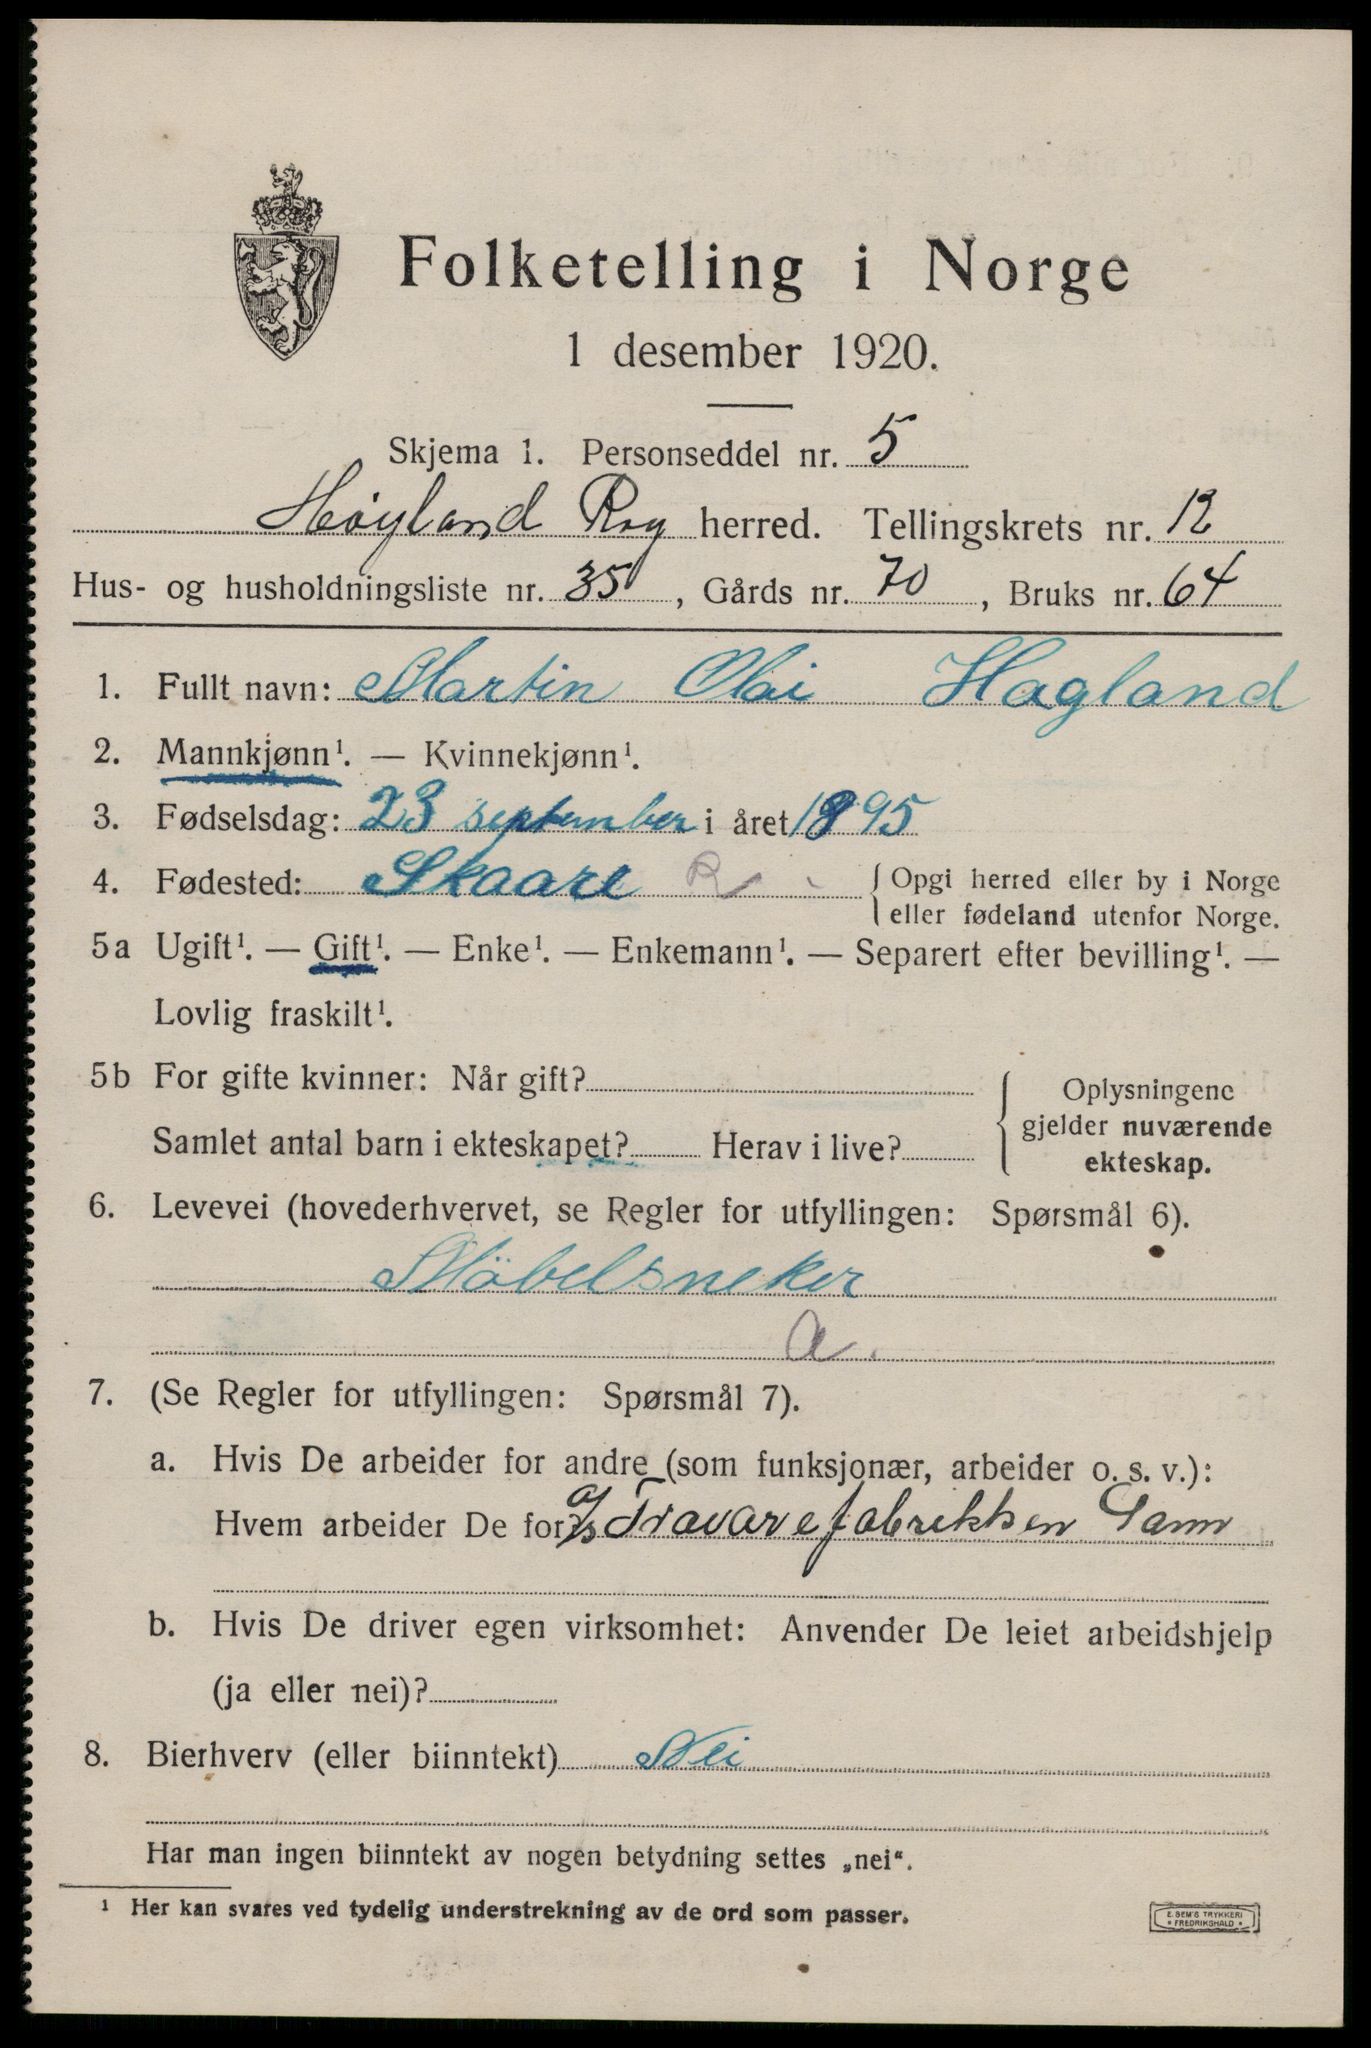 Folketelling i Norge
1 desember 1920.
Skjema 1. Personseddel nr. 5
Høyland Rog herred. Tellingskrets nr. 12
Hus- og husholdningsliste nr. 35, Gårds nr. 70, Bruks nr. 64
1. Fullt navn: Martin Olai Hagland
2. Mannkjønn¹. — Kvinnekjønn¹.
3. Fødselsdag: 23 september i året 1895
4. Fødested: Skaare R { Opgi herred eller by i Norge
eller fødeland utenfor Norge.
5a Ugift¹. — Gift¹. — Enke¹. — Enkemann¹. — Separert efter bevilling¹. —
Lovlig fraskilt¹.
5b For gifte kvinner: Når gift?
Samlet antal barn i ekteskapet? Herav i live?
Oplysningene
gjelder nuværende
ekteskap.
6. Levevei (hovederhvervet, se Regler for utfyllingen: Spørsmål 6).
Möbelsneker
a.
7. (Se Regler for utfyllingen: Spørsmål 7).
a. Hvis De arbeider for andre (som funksjonær, arbeider o. s. v.):
Hvem arbeider De for? a/s Travarefabrikken
b. Hvis De driver egen virksomhet: Anvender De leiet arbeidshjelp
(ja eller nei)?
8. Bierhverv (eller biinntekt) Nei
Har man ingen biinntekt av nogen betydning settes „nei“.
¹ Her kan svares ved tydelig understrekning av de ord som passer.
E. SEM'S TRYKKERI
* FREDRIKSHALD *